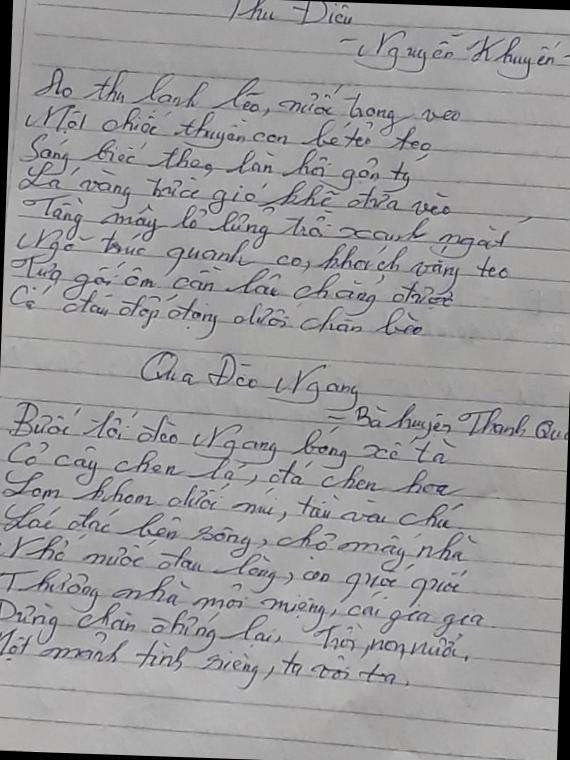 Thu Điếu
- Nguyễn Khuyến -
Ao thu lạnh lẽo, nước trong veo
Một chiếc thuyền con bé tẻo teo
Sóng biếc theo làn hơi gợn tý
Lá vàng trước gió khẽ đưa vèo
Tầng mây lơ lửng trời xanh ngắt
Ngõ trúc quanh co, khách vắng teo
Tựa gối ôm cần lâu chẳng được
Cá đâu đớp động dưới chân bèo
Qua Đèo Ngang
- Bà huyện Thanh Qua
Bước tới đèo Ngang bóng xế tà
Cỏ cây chen lá, đá chen hoa
Lom khom dưới núi, tiều vài chú
Lác đác bên sông, chợ mấy nhà
Nhớ nước đau lòng, con quốc quốc
Thương nhà mỏi miệng, cái gia gia
Dừng chân đứng lại, trời, non, nước,
Một mảnh tình riêng, ta với ta.